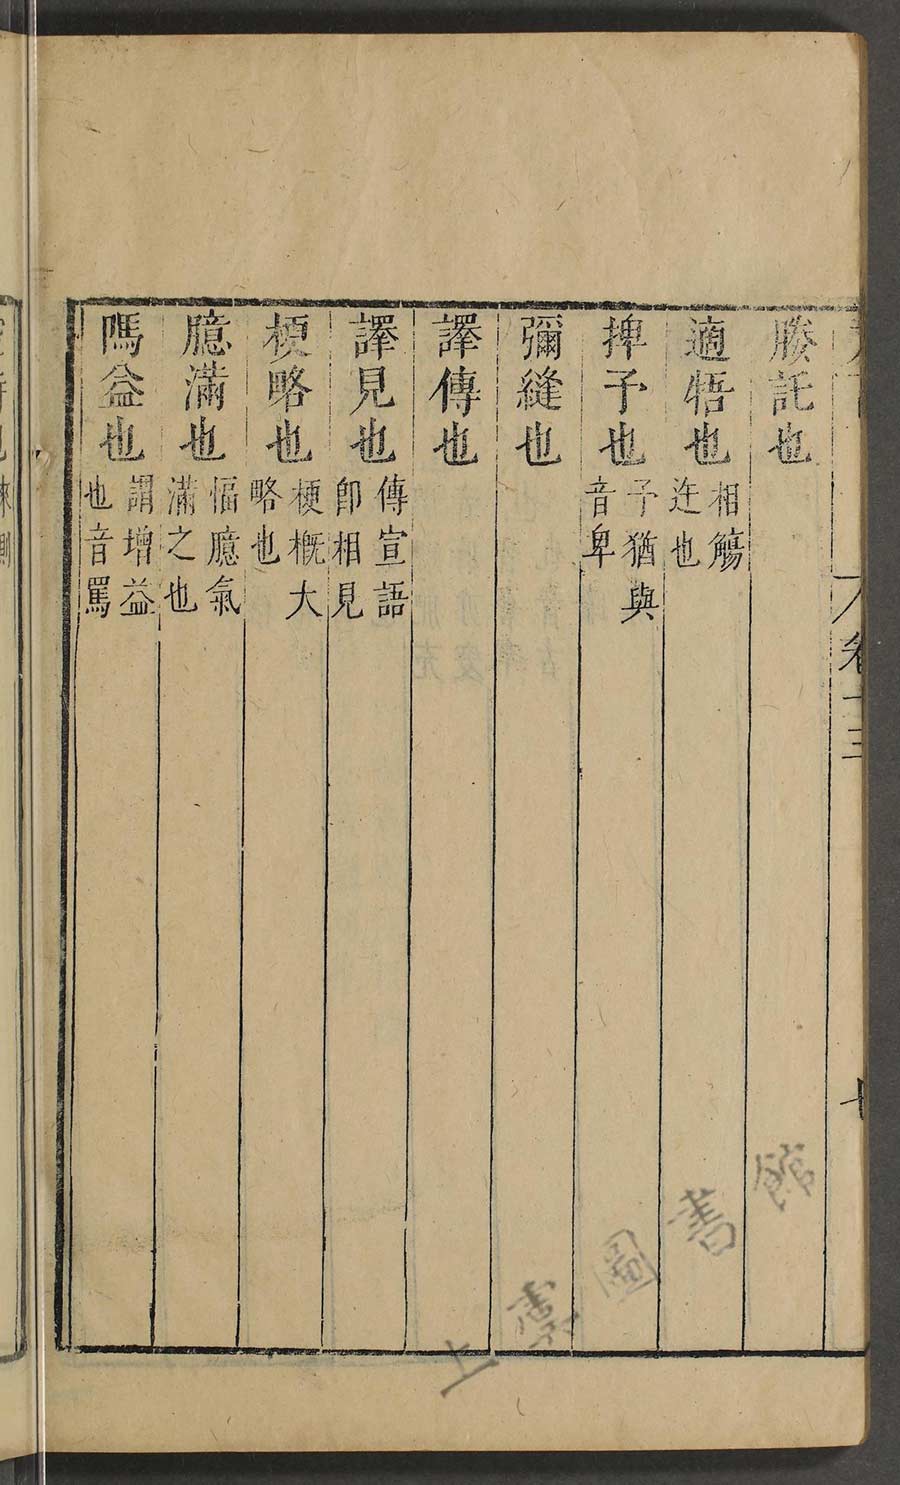 媵託也
適牾也 相觴迕也
捭予也 予猶與音卑
彌縫也
譯傳也
譯見也 傳宣語卽相見
梗略也 梗概大略也
臆滿也 愊臆氣滿之也
隖益也 謂增益也音罵
卷十三
七
上
圖書館